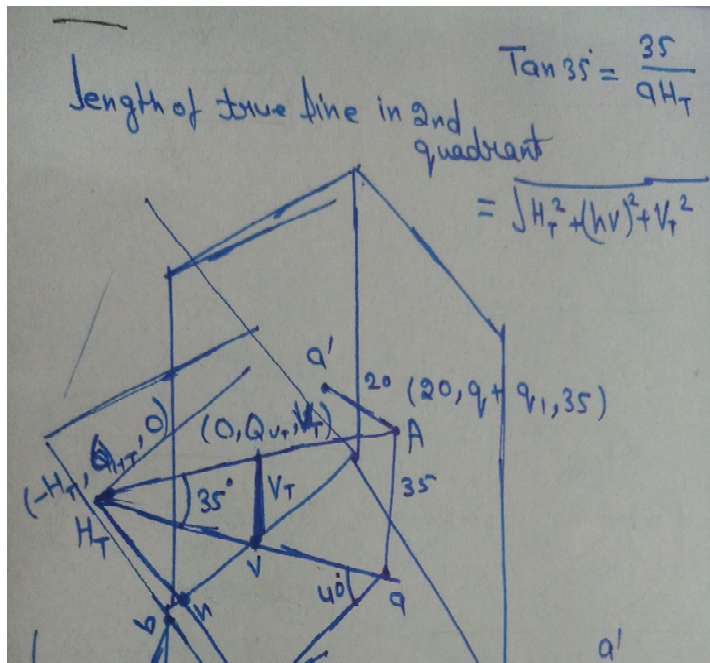 Tan 35° = 35 / qH_T
length of true line in 2nd
quadrant
= √H_T² + (hv)² + V_T²
a'
20
(20, q + q₁, 35)
A
(0, Q_VT, V_T)
(-H_T, Q_HT, 0)
35°
V_T
35
H_T
v
40°
q
h
a'